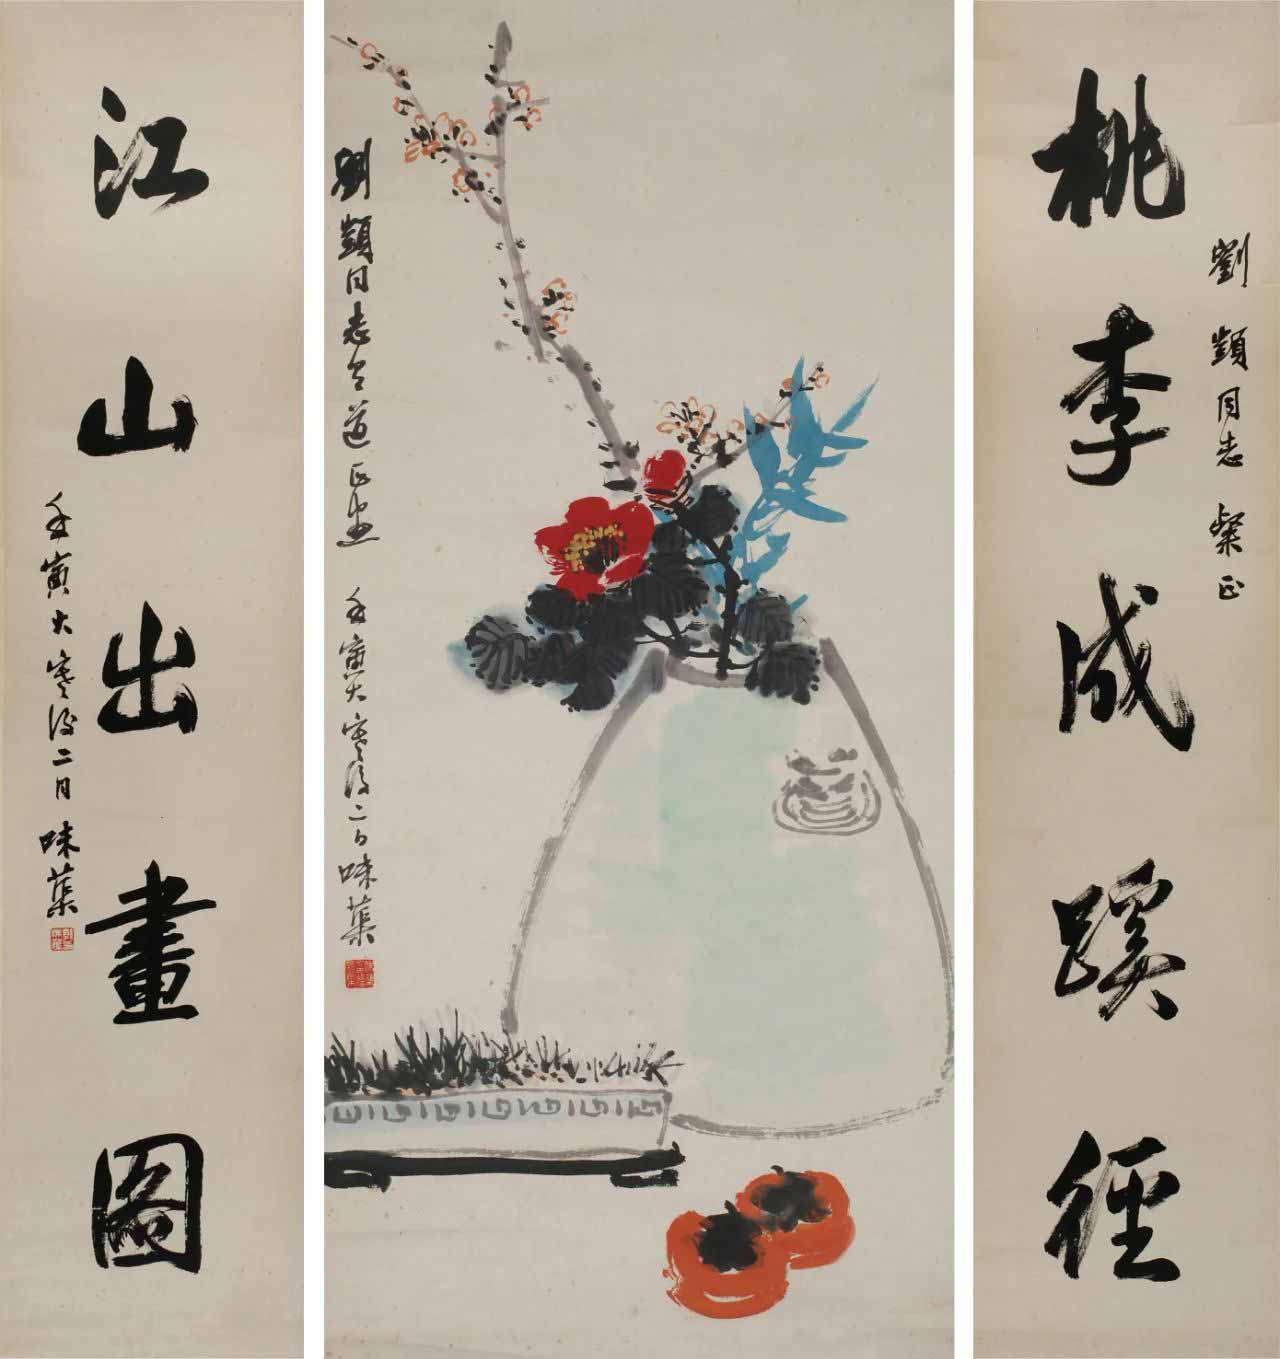 桃李成蹊徑
劉顗同志粲正
江山出畫圖
壬寅大寒後二日 味蕖
劉顗同志合道正畫
壬寅大寒後二日味蕖